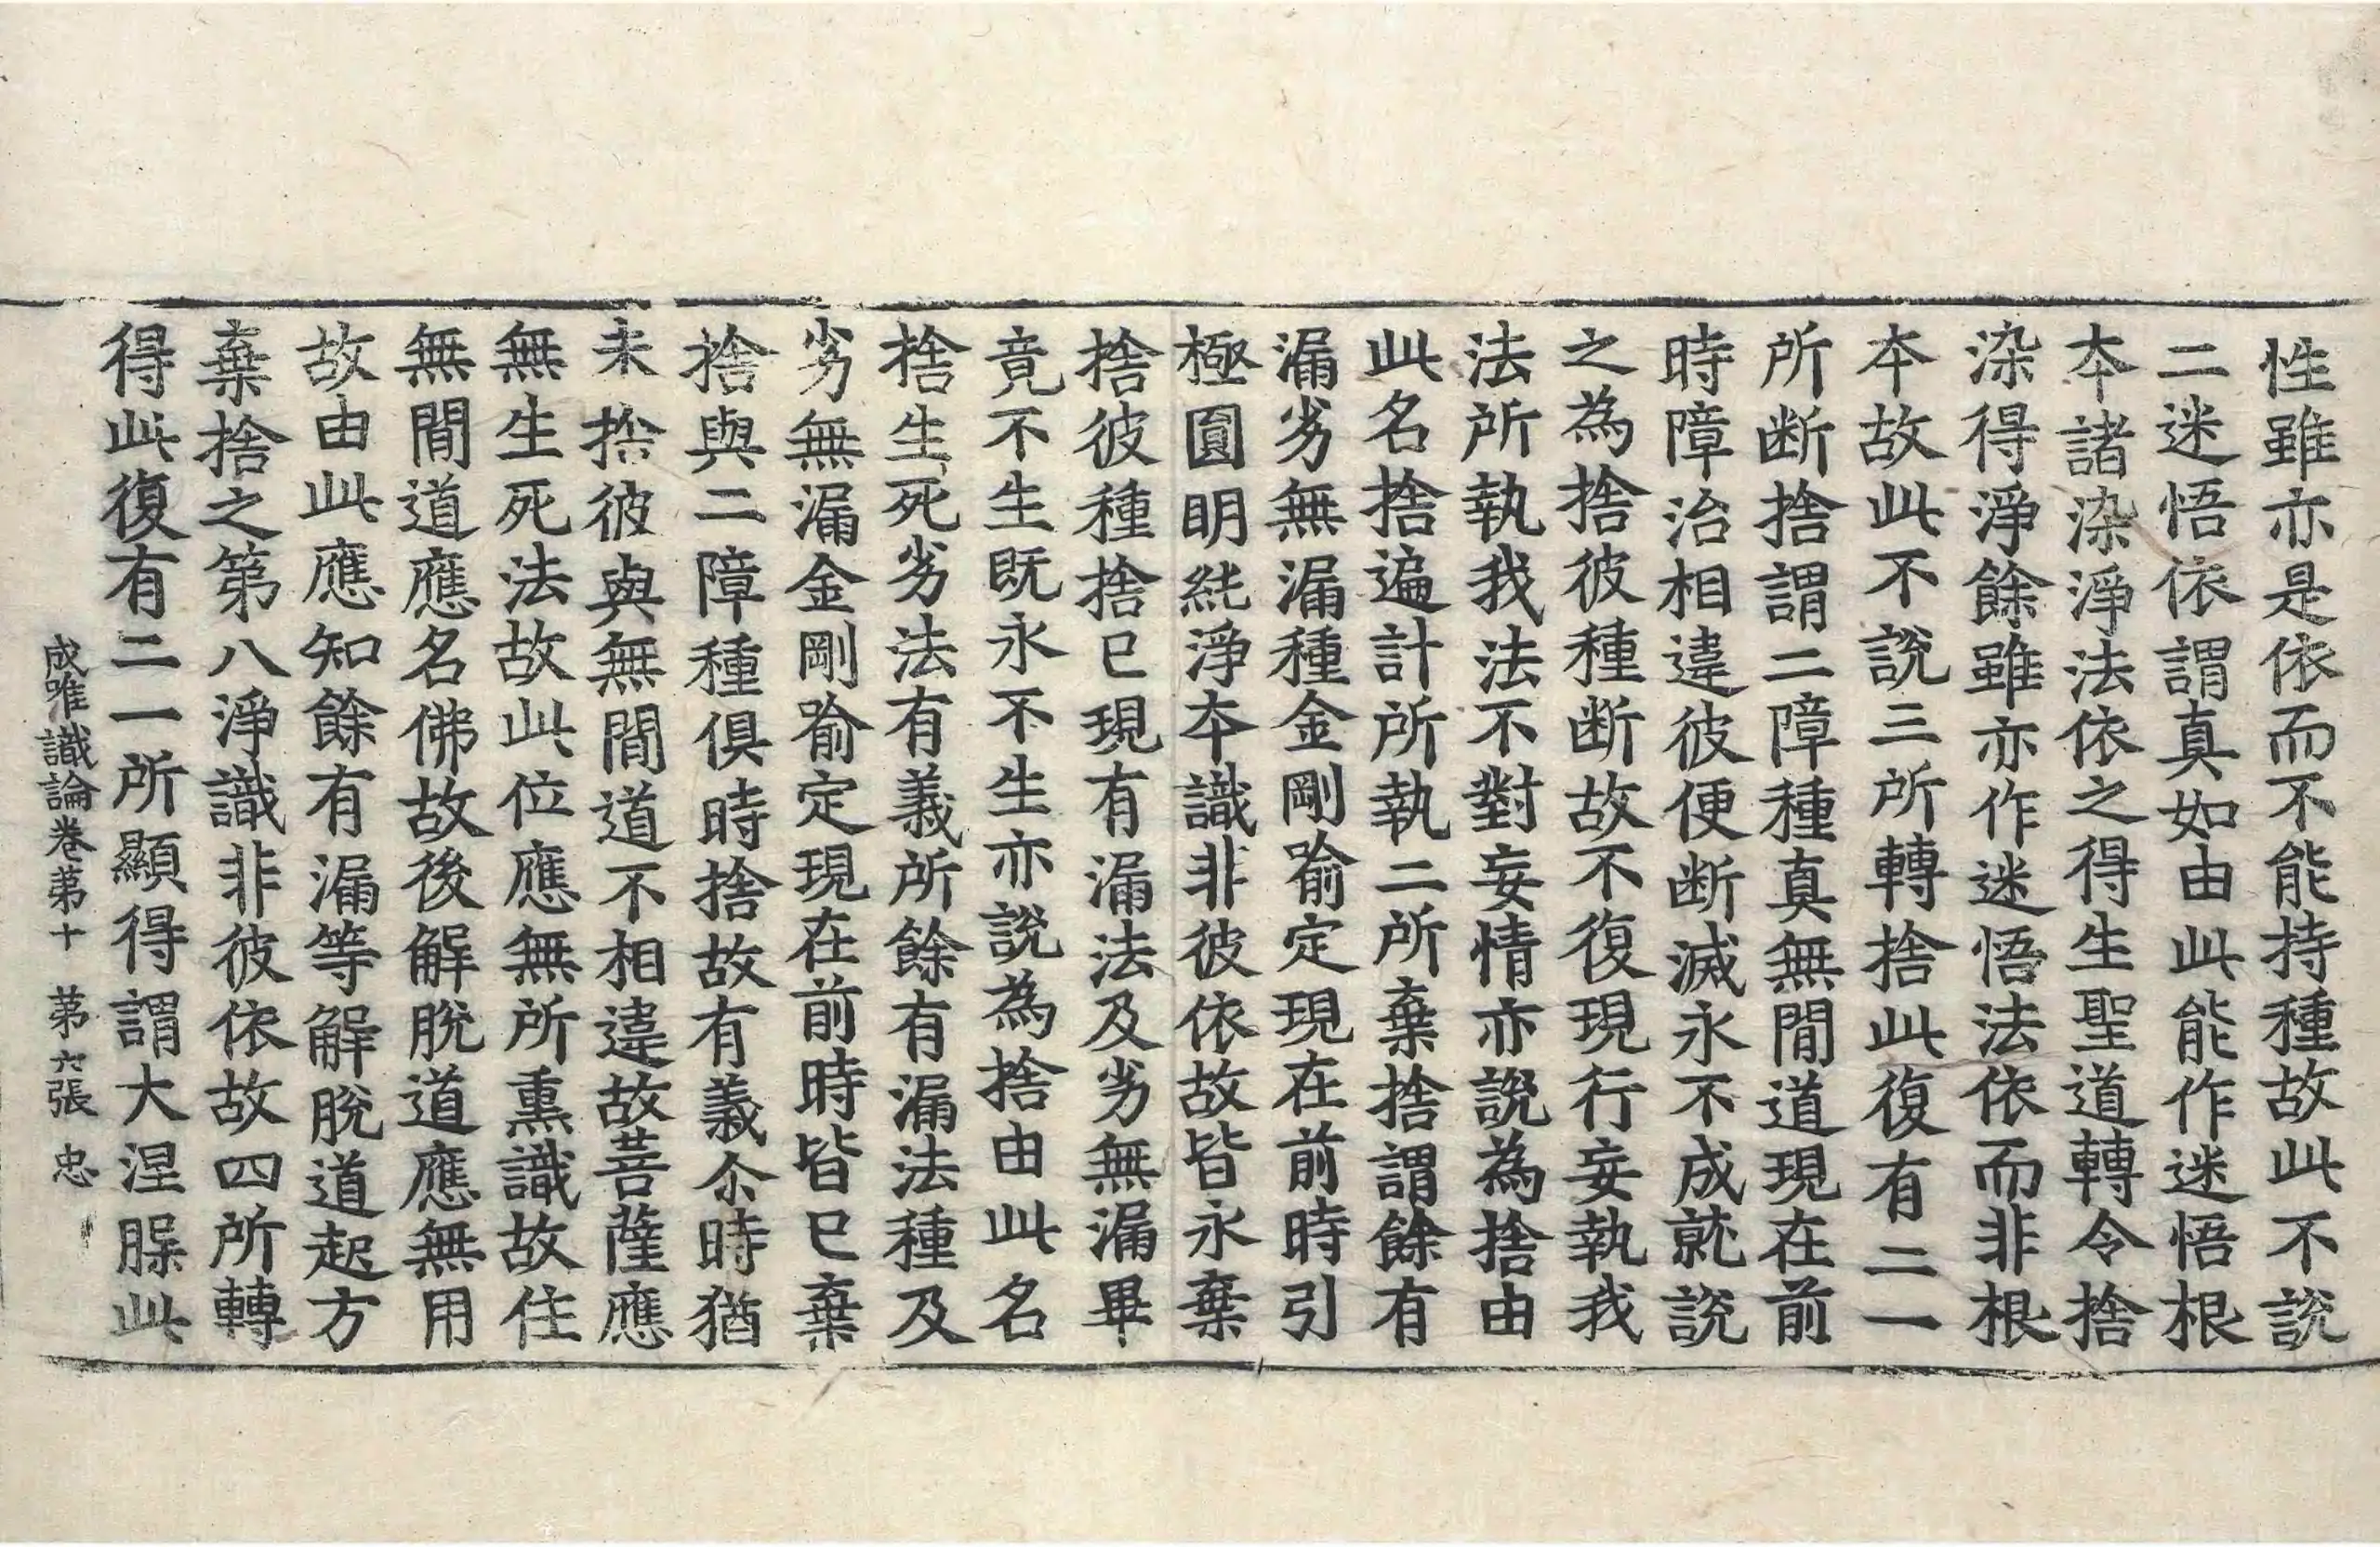 性雖亦是依而不能持種故此不說
二迷悟依謂真如由此能作迷悟根
夲諸染淨法依之得生聖道轉令捨
染得淨餘雖亦作迷悟法依而非根
夲故此不說三所轉捨此復有二一
所断捨謂二障種真無閒道現在前
時障治相違彼便断滅永不成就說
之為捨彼種断故不復現行妄執我
法所執我法不對妄情亦說為捨由
此名捨遍計所執二所棄捨謂餘有
漏劣無漏種金剛喻定現在前時引
極圓明純淨夲識非彼依故皆永棄
捨彼種捨已現有漏法及劣無漏畢
竟不生既永不生亦說為捨由此名
捨生死劣法有義所餘有漏法種及
劣無漏金剛喻定現在前時皆已棄
捨與二障種俱時捨故有義尒時猶
未捨彼與無閒道不相違故菩薩應
無生死法故此位應無所熏識故住
無閒道應名佛故後解脫道應無用
故由此應知餘有漏等解脫道起方
棄捨之第八淨識非彼依故四所轉
得此復有二一所顯得謂大涅槃此
成唯識論卷第十 第六張 忠